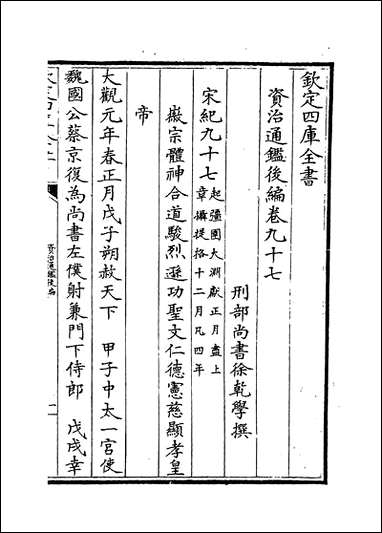 欽定四庫全書
資治通鑑後編卷九十七
刑部尚書徐乾學撰
宋紀九十七
起彊圉大淵獻正月盡上
章攝提格十二月凡四年
徽宗體神合道駿烈遜功聖文仁德憲慈顯孝皇
帝
大觀元年春正月戊子朔赦天下 甲子中太一宮使
魏國公蔡京復為尚書左僕射兼門下侍郎 戊戌幸
資治通鑑後編
一